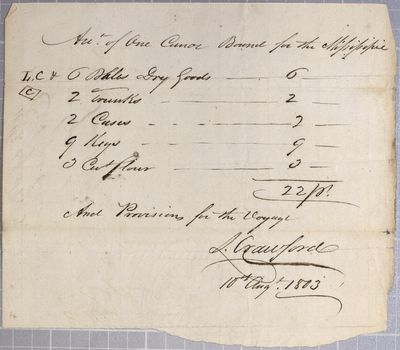 Acct. of One Canoe Bound for the Mississipie
L.C & 6 Bales Dry Goods — 6 —
C 2 Trunks — 2 —
2 Cases — 2 —
9 Kegs — 9 —
3 Cwt flour — 3 —
22 ps.
And Provisions for the Voyage
L. Crawford
10th Augt. 1803